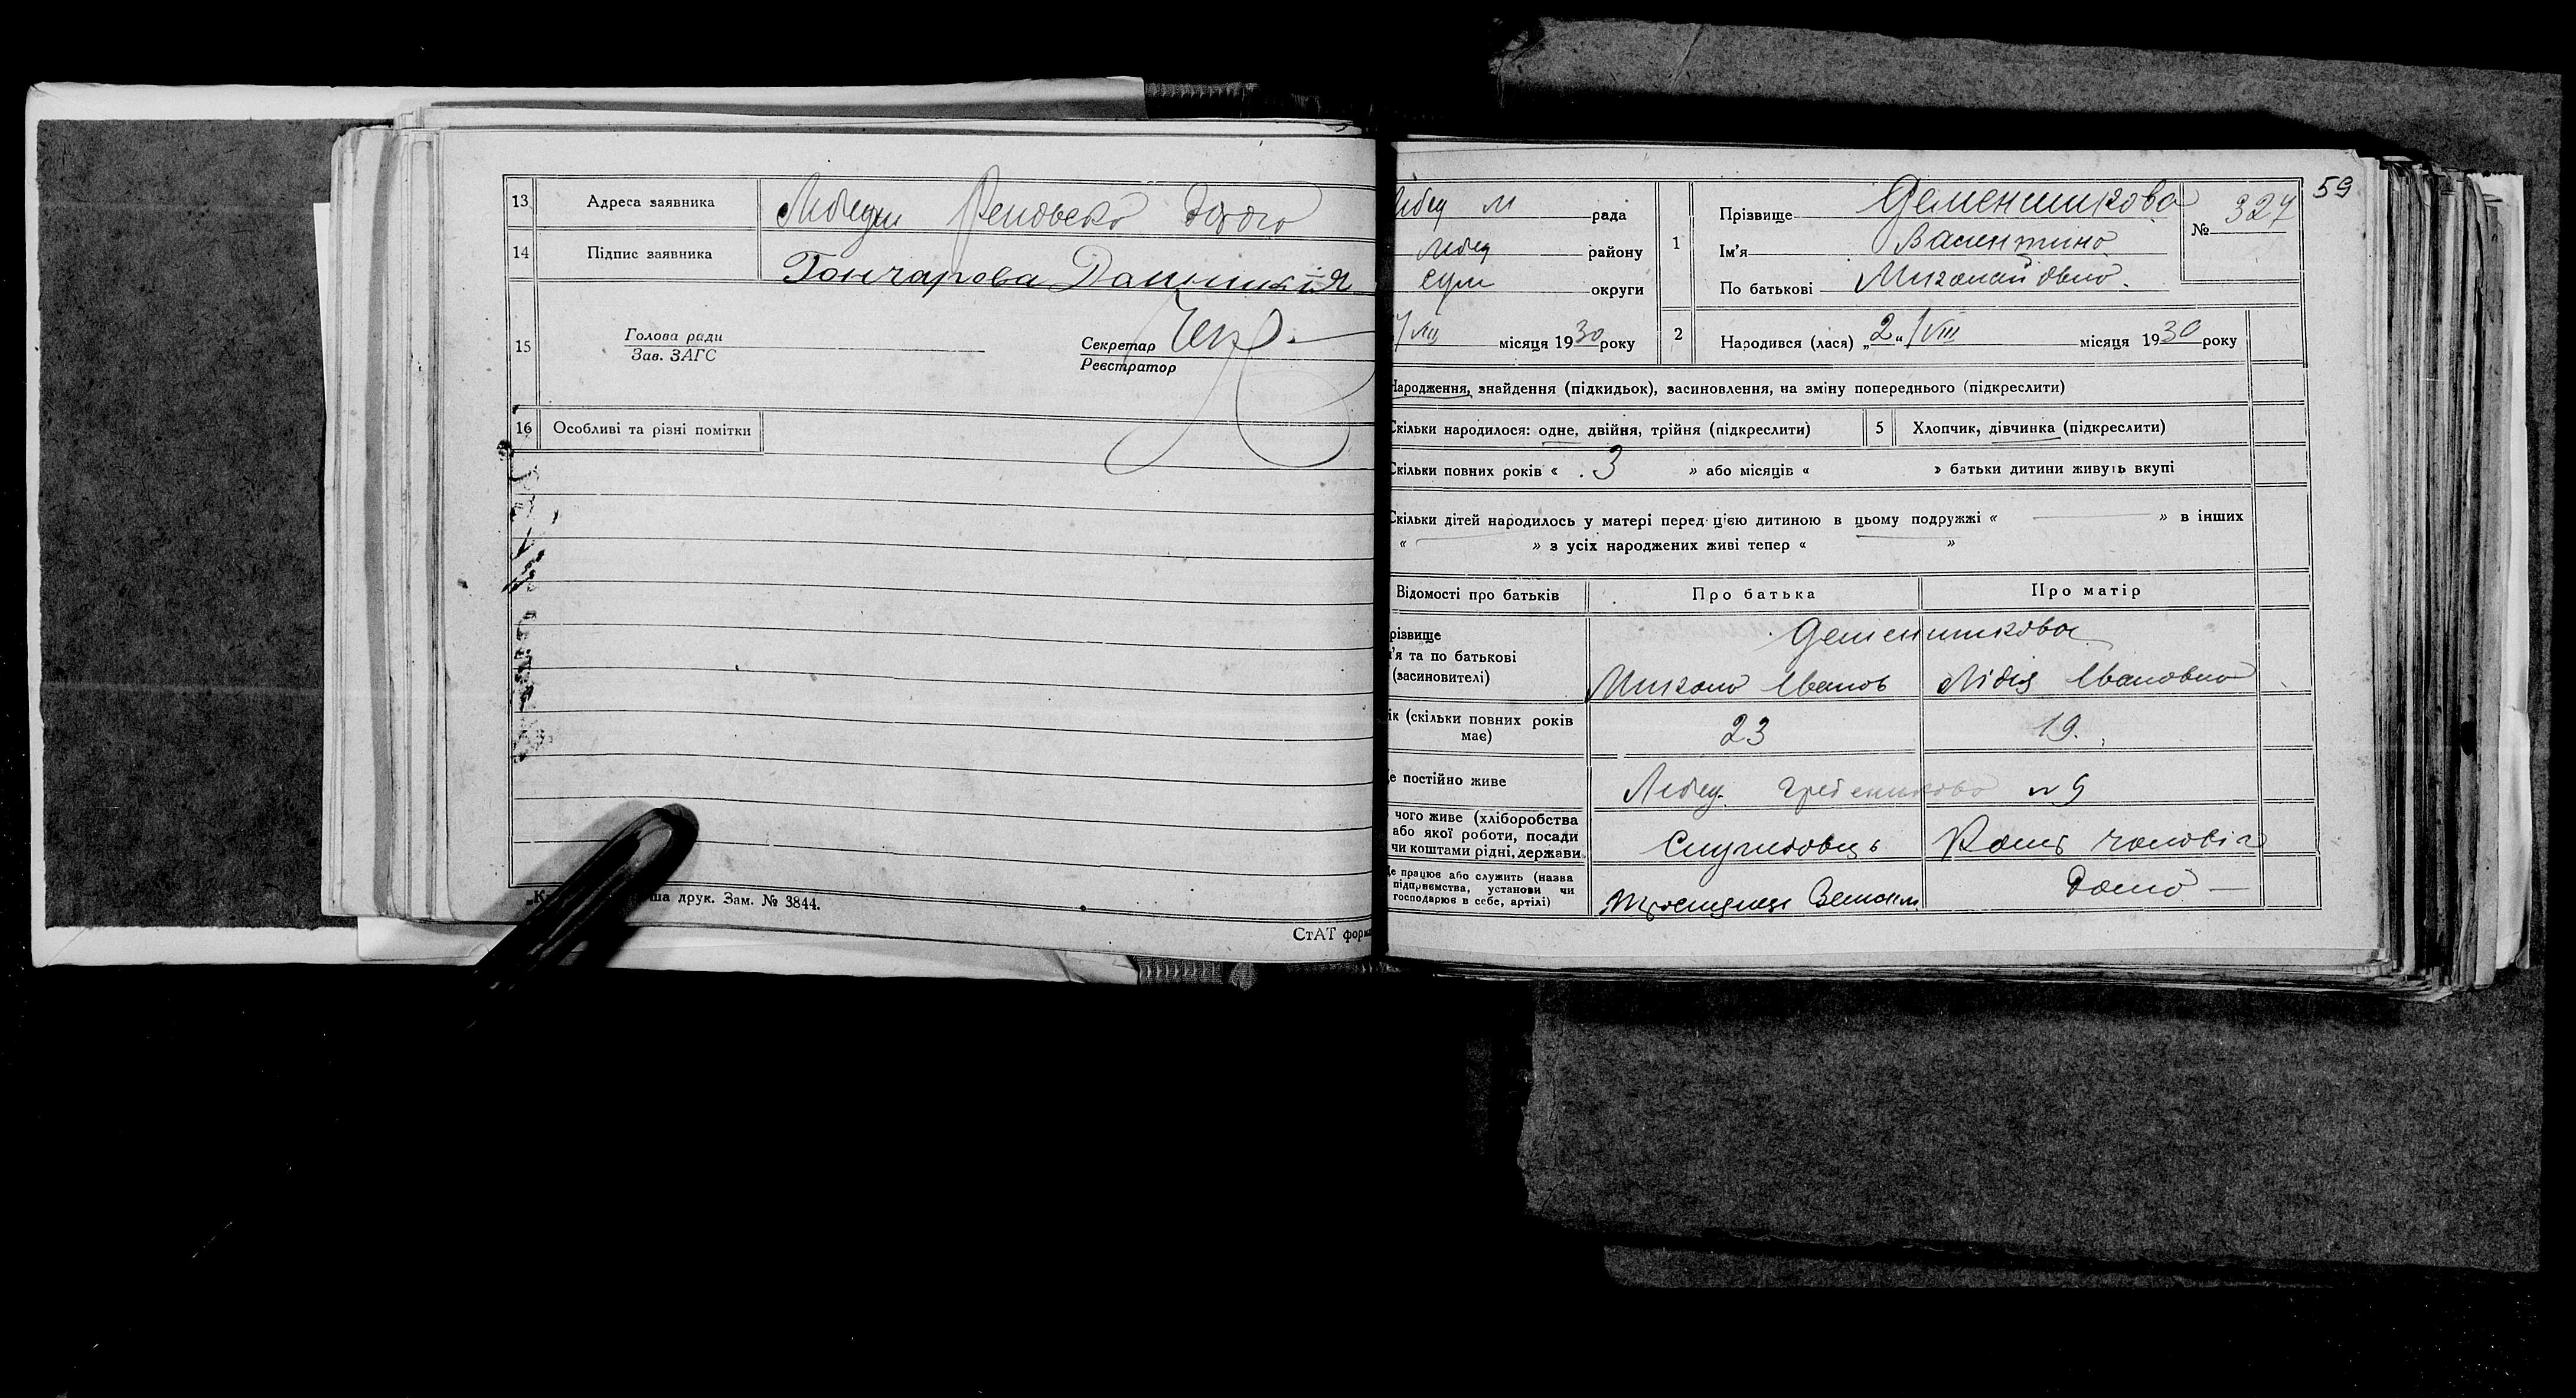 13 Адреса заявника Лебедин
14 Підпис заявника Гончарова
15 Голова ради
Зав. ЗАГС
Секретар
Реєстратор
16 Особливі та різні помітки
ша друк. Зам. № 3844.
СтАТ форма
59
Лебед м рада
Лебед району
Сум округи
1 Прізвище Деменшикова
Ім'я Валентина
По батькові Миколаївна.
№ 327
7/VIII місяця 1930 року
2 Народився (лася) „2“ VIII місяця 1930 року
Народження, знайдення (підкидьок), засиновлення, на зміну попереднього (підкреслити)
Скільки народилося: одне, двійня, трійня (підкреслити) 5 Хлопчик, дівчинка (підкреслити)
Скільки повних років « 3 » або місяців « » батьки дитини живуть вкупі
Скільки дітей народилось у матері перед цією дитиною в цьому подружжі « — » в інших
« — » з усіх народжених живі тепер « »
Відомості про батьків Про батька Про матір
різвище
'я та по батькові
(засиновителі)
Деменшикова
Микола Іванов Лідия Ивановна
ік (скільки повних років
має)
23 19.
е постійно живе Лебед. №9
чого живе (хліборобства
або якої роботи, посади
чи коштами рідні, держави
Службовець Кошт чоловіка
е працює або служить (назва
підприємства, установи чи
господарює в себе, артілі)
Тростянець Дома —